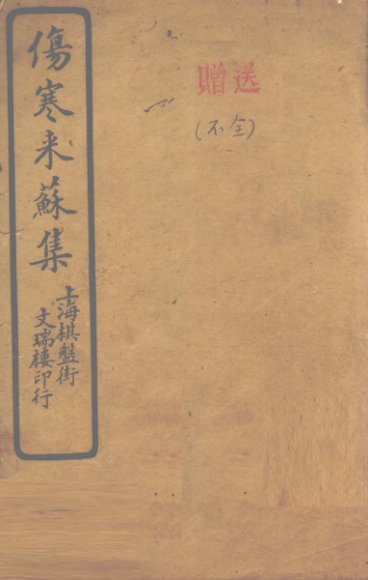 傷寒来蘇集
上海棋盤街
文瑞樓印行
贈送
(不全)